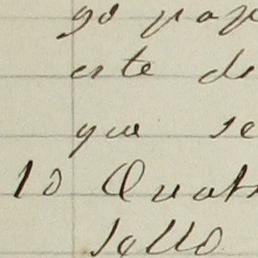 go pap
este de
que se
10 Quat
sello